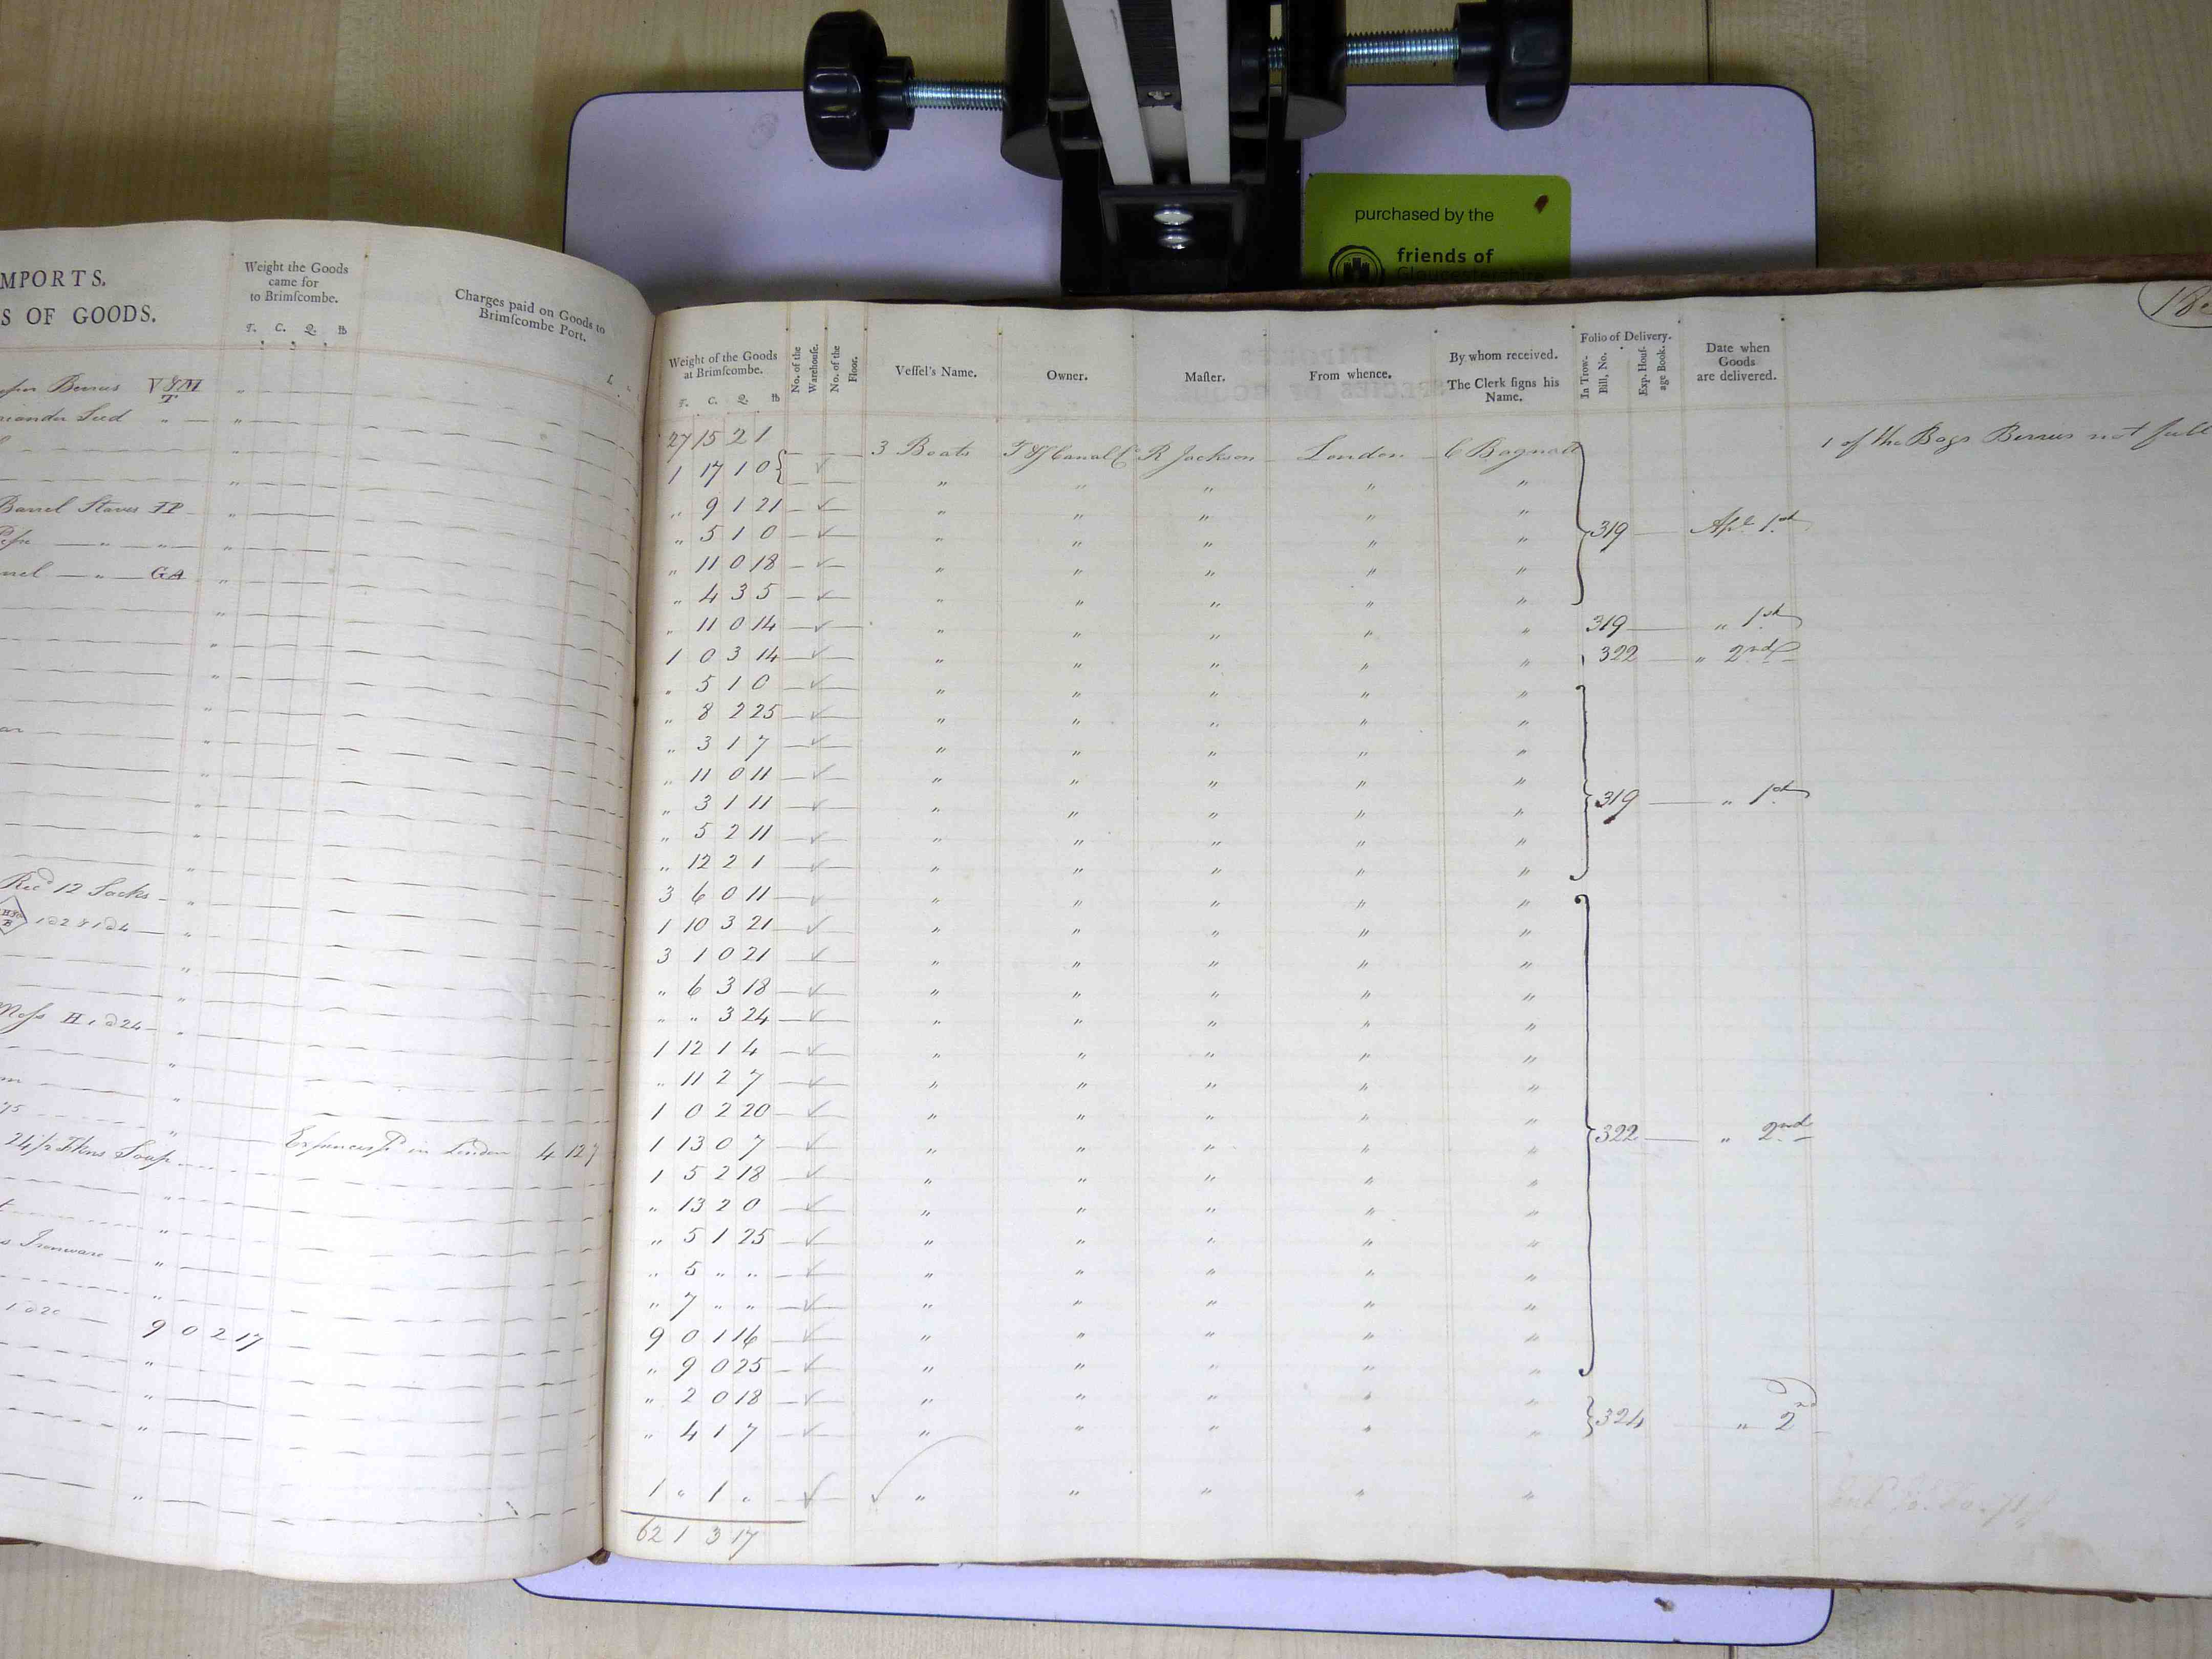 purchased by the
friends of
MPORTS.
S OF GOODS.
Weight the Goods
came for
to Brimſcombe.
T. C. Q. lb
Charges paid on Goods to
Brimſcombe Port.
Berries V&M
T
Seed " —
Barrel Staves IP
— " — " —
— " — GA
Recd 12 Sacks
1@2 & 1@4
Moss H 1@24
24/2 Fkns Soap Expences Pd in London 4 12 7
s Ironware
1 @ 20
9 0 2 17
Weight of the Goods
at Brimſcombe.
T. C. Q. lb
No. of the
Warehouſe.
No. of the
Floor.
Veſſel's Name.
Owner.
Maſter.
From whence.
By whom received.
The Clerk ſigns his
Name.
Folio of Delivery.
In Trow-
Bill, No.
Exp. Houſ-
age Book.
Date when
Goods
are delivered.
27 15 2 1 3 Boats T & S Canal Co R Jackson London C Bagnall 1 of the Bags Berries not full
1 17 1 0 " " " " "
" 9 1 21 " " " " "
" 5 1 0 " " " " " 319 Apl 1st
" 11 0 18 " " " " "
" 4 3 5 " " " " "
" 11 0 14 " " " " " 319 " 1st
1 0 3 14 " " " " " 322 " 2nd
" 5 1 0 " " " " "
" 8 2 25 " " " " "
" 3 1 7 " " " " "
" 11 0 11 " " " " "
" 3 1 11 " " " " " 319 " 1st
" 5 2 11 " " " " "
" 12 2 1 " " " " "
3 6 0 11 " " " " "
1 10 3 21 " " " " "
3 1 0 21 " " " " "
" 6 3 18 " " " " "
" " 3 24 " " " " "
1 12 1 4 " " " " "
" 11 2 7 " " " " "
1 0 2 20 " " " " "
1 13 0 7 " " " " " 322 " 2nd
1 5 2 18 " " " " "
" 13 2 0 " " " " "
" 5 1 25 " " " " "
" 5 " " " " " " "
" 7 " " " " " " "
9 0 1 16 " " " " "
" 9 0 25 " " " " "
" 2 0 18 " " " " "
" 4 1 7 " " " " " 324 " 2nd
1 " 1 " " " " " "
62 1 3 17